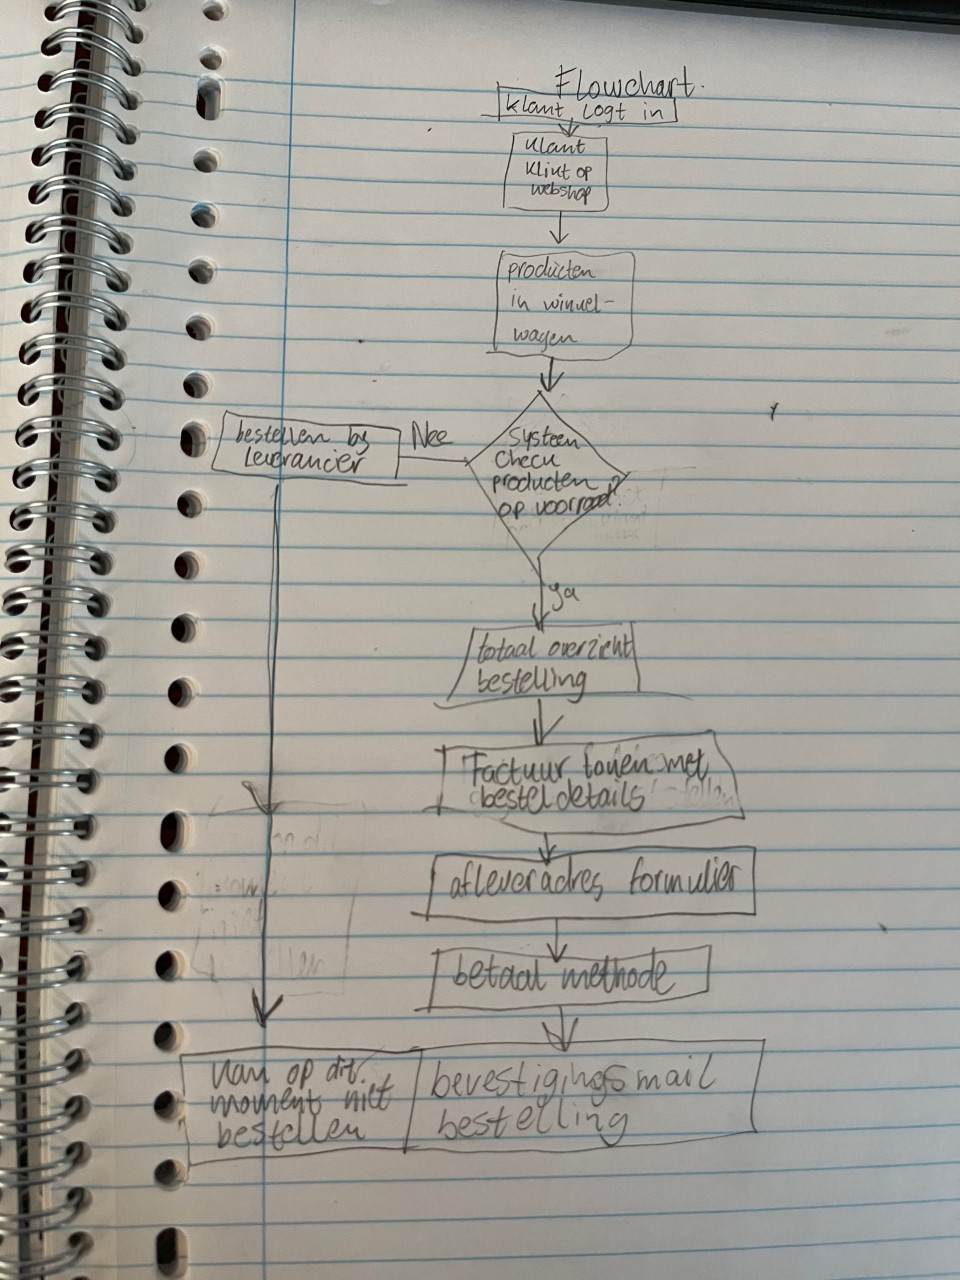 Flowchart.
klant logt in
klant
klikt op
webshop
producten
in winkel-
wagen
bestellen bij
Leverancier
Nee
Systeem
check
producten
op voorraad?
ja
totaal overzicht
bestelling
Factuur tonen met
bestel details
afleveradres formulier
betaal methode
kan op dit
moment niet
bestellen
bevestigingsmail
bestelling